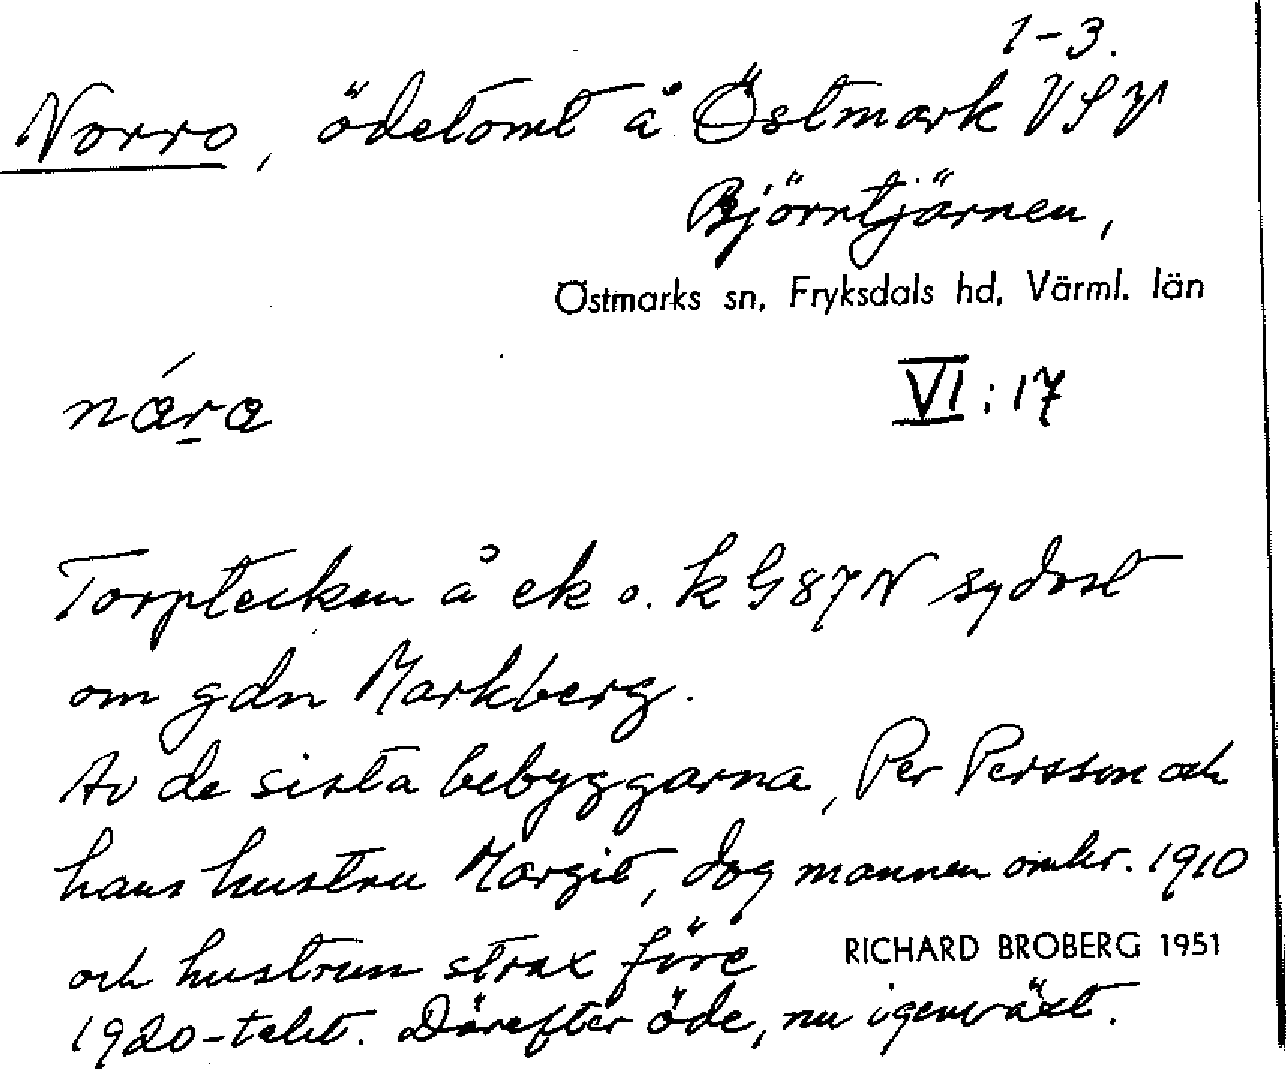 1-3.
Norro, ödetomt å Östmark VSV
Björntjärnen,
Östmarks sn, Fryksdals hd, Värml. län
nǽra VI:17
Torptecken å ek o. k G87N sydost
om gdn Markberg.
Av de sista bebyggarna, Per Persson och
hans hustru Margit, dog mannen omkr. 1910
och hustrun strax före
RICHARD BROBERG 1951
1920-talet. Därefter öde, nu igenväxt.